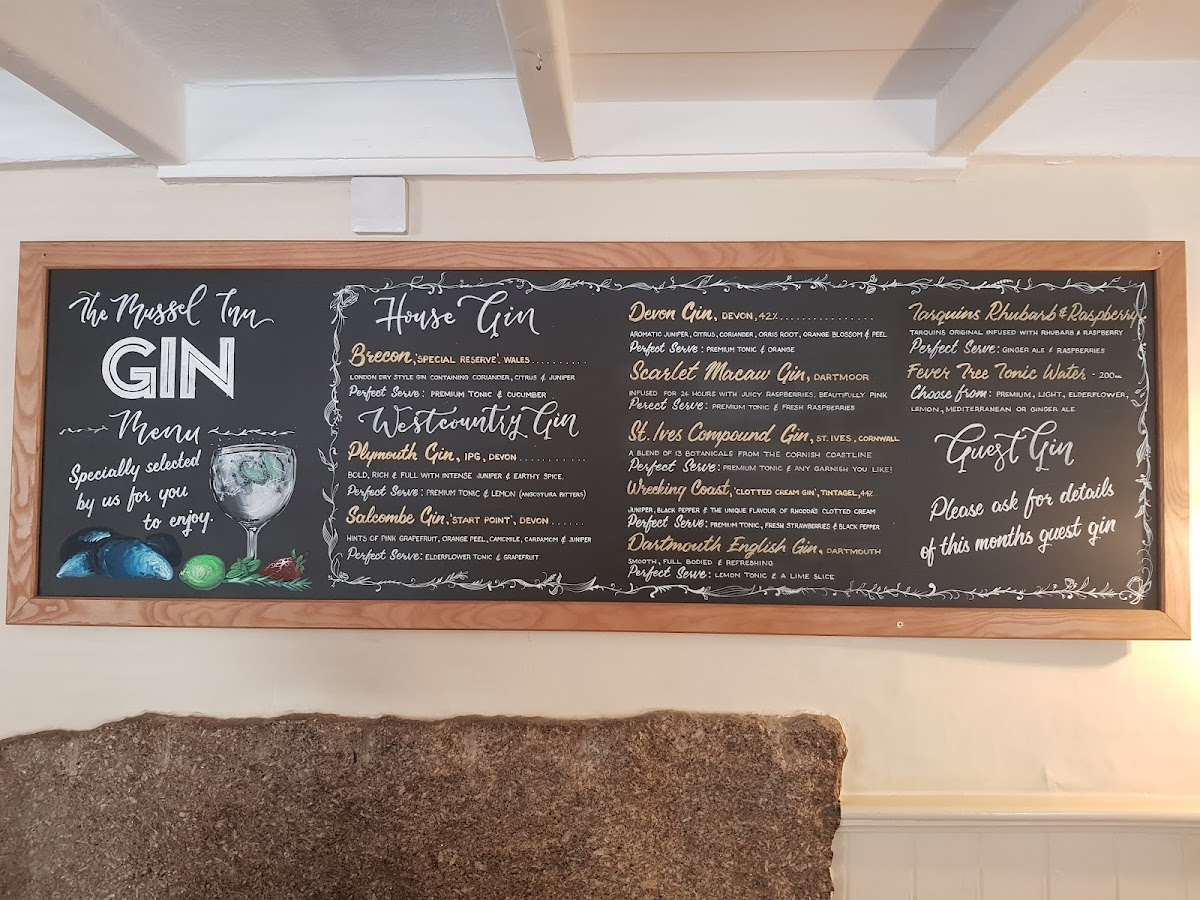 The Mussel Inn
GIN
Menu
Specially selected
by us for you
to enjoy.
House Gin
Brecon, 'SPECIAL RESERVE', WALES ..........
LONDON DRY STYLE GIN CONTAINING CORIANDER, CITRUS & JUNIPER
Perfect Serve: PREMIUM TONIC & CUCUMBER
Westcountry Gin
Plymouth Gin, IPG, DEVON ............
BOLD, RICH & FULL WITH INTENSE JUNIPER & EARTHY SPICE.
Perfect Serve: PREMIUM TONIC & LEMON (ANGOSTURA BITTERS)
Salcombe Gin, 'START POINT', DEVON ......
HINTS OF PINK GRAPEFRUIT, ORANGE PEEL, CAMCMILE, CARDAMOM & JUNIPER
Perfect Serve: ELDERFLOWER TONIC & GRAPEFRUIT
Devon Gin, DEVON, 42% ................
AROMATIC JUNIPER, CITRUS, CORIANDER, ORRIS ROOT, ORANGE BLOSSOM & PEEL
Perfect Serve: PREMIUM TONIC & ORANGE
Scarlet Macaw Gin, DARTMOOR
INFUSED FOR 24 HOURS WITH JUICY RASPBERRIES. BEAUTIFULLY PINK
Perect Serve: PREMIUM TONIC & FRESH RASPBERRIES
St. Ives Compound Gin, ST. IVES, CORNWALL
A BLEND OF 13 BOTANICALS FROM THE CORNISH COASTLINE
Perfect Serve: PREMIUM TONIC & ANY GARNISH YOU LIKE!
Wrecking Coast, 'CLOTTED CREAM GIN', TINTAGEL, 44%
JUNIPER, BLACK PEPPER & THE UNIQUE FLAVOUR OF RHODDAS CLOTTED CREAM
Perfect Serve: PREMIUM TONIC, FRESH STRAWBERRIES & BLACK PEPPER
Dartmouth English Gin, DARTMOUTH
SMOOTH, FULL BODIED & REFRESHING
Perfect Serve: LEMON TONIC & A LIME SLICE
Tarquins Rhubarb & Raspberry
TARQUINS ORIGINAL INFUSED WITH RHUBARB & RASPBERRY
Perfect Serve: GINGER ALE & RASPBERRIES
Fever Tree Tonic Water - 200ml
Choose from: PREMIUM, LIGHT, ELDERFLOWER,
LEMON, MEDITERRANEAN OR GINGER ALE
Guest Gin
Please ask for details
of this months guest gin